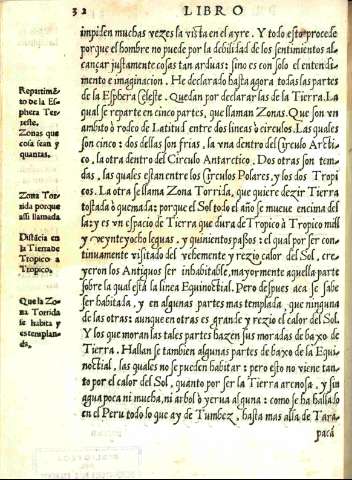 32 LIBRO
impiden muchas vezes la vista en el ayre. Y todo esto procede
porque el hombre no puede por la debilidad de los sentimientos al-
cançar justamente cosas tan arduas: sino es con solo el entendi-
mento e imaginacion. He declarado hasta agora todas las partes
de la Esphera Celeste. Quedan por declarar las de la Tierra. La
qual se reparte en cinco partes, que llaman Zonas. Que son vn
ambito ò rodeo de Latitud entre dos lineas ò circulos. Las quales
son cinco: dos dellas son frias, la vna dentro del Circulo Arcti-
co, la otra dentro del Circulo Antarctico. Dos otras son tem-
das, las quales estan entre los Circulos Polares, y los dos Tropi
cos. La otra se llama Zona Torrida, que quiere dezir Tierra
tostada ò quemada: porque el Sol todo el año se mueve encima del
la: y es vn espacio de Tierra que dura de Tropico à Tropico mill
y veynteyocho leguas, y quinientos passos: el qual por ser con
tinuamente visitado del vehemente y rezio calor del Sol, cre-
yeron los Antiguos ser inhabitable, mayormente aquella parte
sobre la qual està la linea Equinoctial. Pero despues aca se sabe
ser habitada, y en algunas partes mas templada que ninguna
de las otras: aunque en otras es grande y rezio el calor del Sol.
Y los que moran las tales partes hazen sus moradas de baxo de
Tierra. Hallan se tambien algunas partes de baxo de la Equi-
noctial, las quales no se pueden habitar: pero esto no viene tan-
to por el calor del Sol, quanto por ser la Tierra arenosa, y sin
agua poca ni mucha, ni arbol ò yerua alguna: como se ha hallado
en el Peru todo lo que ay de Tumbez, hasta mas alla de Tara-
pacà
Repartimẽ
to de la Es
phera Ter-
reste.
Zonas que
cosa sean y
quantas.
Zona Tor-
rida porque
assi llamada
Distãcia en
la Tierra de
Tropico a
Tropico.
Que la Zo-
na Torrida
se habita y
es templan-
da.
BIBLIOTECA